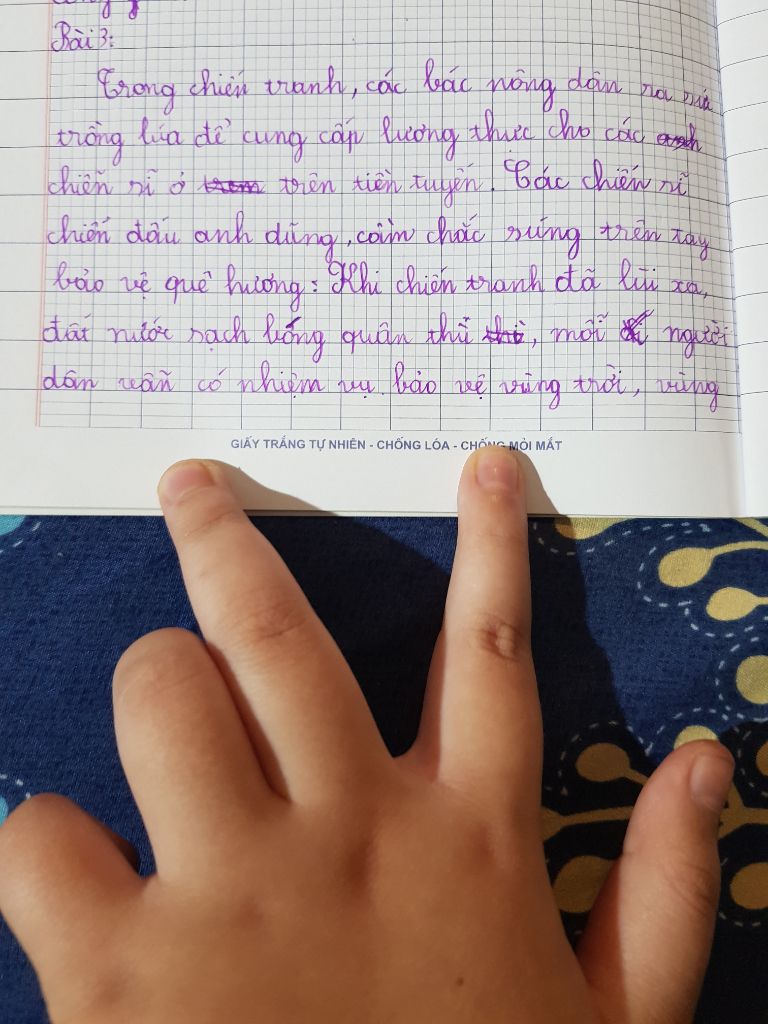 Bài 3:
Trong chiến tranh, các bác nông dân ra sức
trồng lúa để cung cấp lương thực cho các
chiến sĩ ở trên tiền tuyến. Các chiến sĩ
chiến đấu anh dũng, cầm chắc súng trên tay
bảo vệ quê hương: Khi chiến tranh đã lùi xa,
đất nước sạch bóng quân thù, mỗi người
dân vẫn có nhiệm vụ bảo vệ vùng trời, vùng
GIẤY TRẮNG TỰ NHIÊN - CHỐNG LÓA - CHỐNG MỎI MẮT